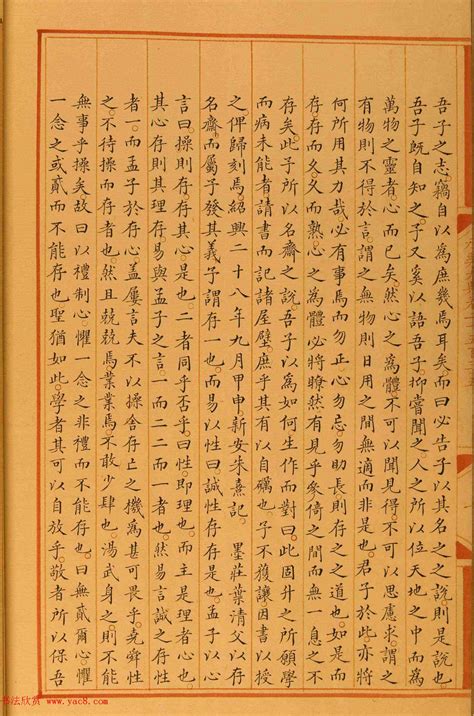 吾子之志竊自以為庶幾焉耳矣而曰必告子以其名之之說則是說也
吾子既自知之子又奚以語吾子抑嘗聞之人之所以位天地之中而為
萬物之靈者心而已矣然心之為體不可以聞見得不可以思慮求謂之
有物則不得於言謂之無物則日用之間無適而非是也君子於此亦將
何所用其力哉必有事焉而勿正心勿忘勿助長則存之之道也如是而
存存而久久而熟心之為體必將瞭然有見乎參倚之間而無一息之不
存矣此予所以名齋之說吾子以為如何生作而對曰此固升之所願學
而病未能者請書而記諸屋壁庶乎其有以自礪也予不獲讓因書以授
之俾歸刻焉紹興二十八年九月甲申新安朱熹記 墨莊葉清父以存
名齋而屬予發其義予謂存一也而易以性曰誠性存存是也孟子以心
言曰操則存存其心是也二者同乎否乎曰性即理也而主是理者心也
其心存則其理存易與孟子之言一而二二而一者也然易言誠之存存
者一而孟子於存心蓋屢言夫不以操舍存亡之機為甚可畏乎堯舜性
之不待操而存者也然且兢兢焉業業焉不敢少肆也湯武身之則不能
無事乎操矣故曰以禮制心懼一念之非禮而不能存也曰無貳爾心懼
一念之或貳而不能存也聖猶如此學者其可以自放乎敬者所以保吾
书法欣赏 www.yac8.com